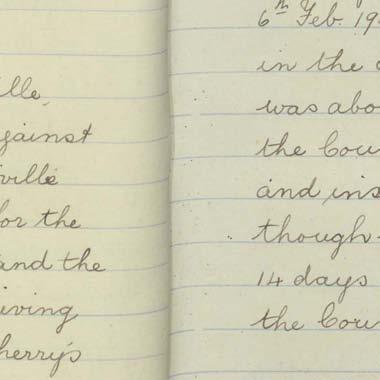 ille,
gainst
ville
for the
and the
iving
herry's
6th Feb. 19
in the
was abo
the Cou
and ins
though
14 days
the Cour